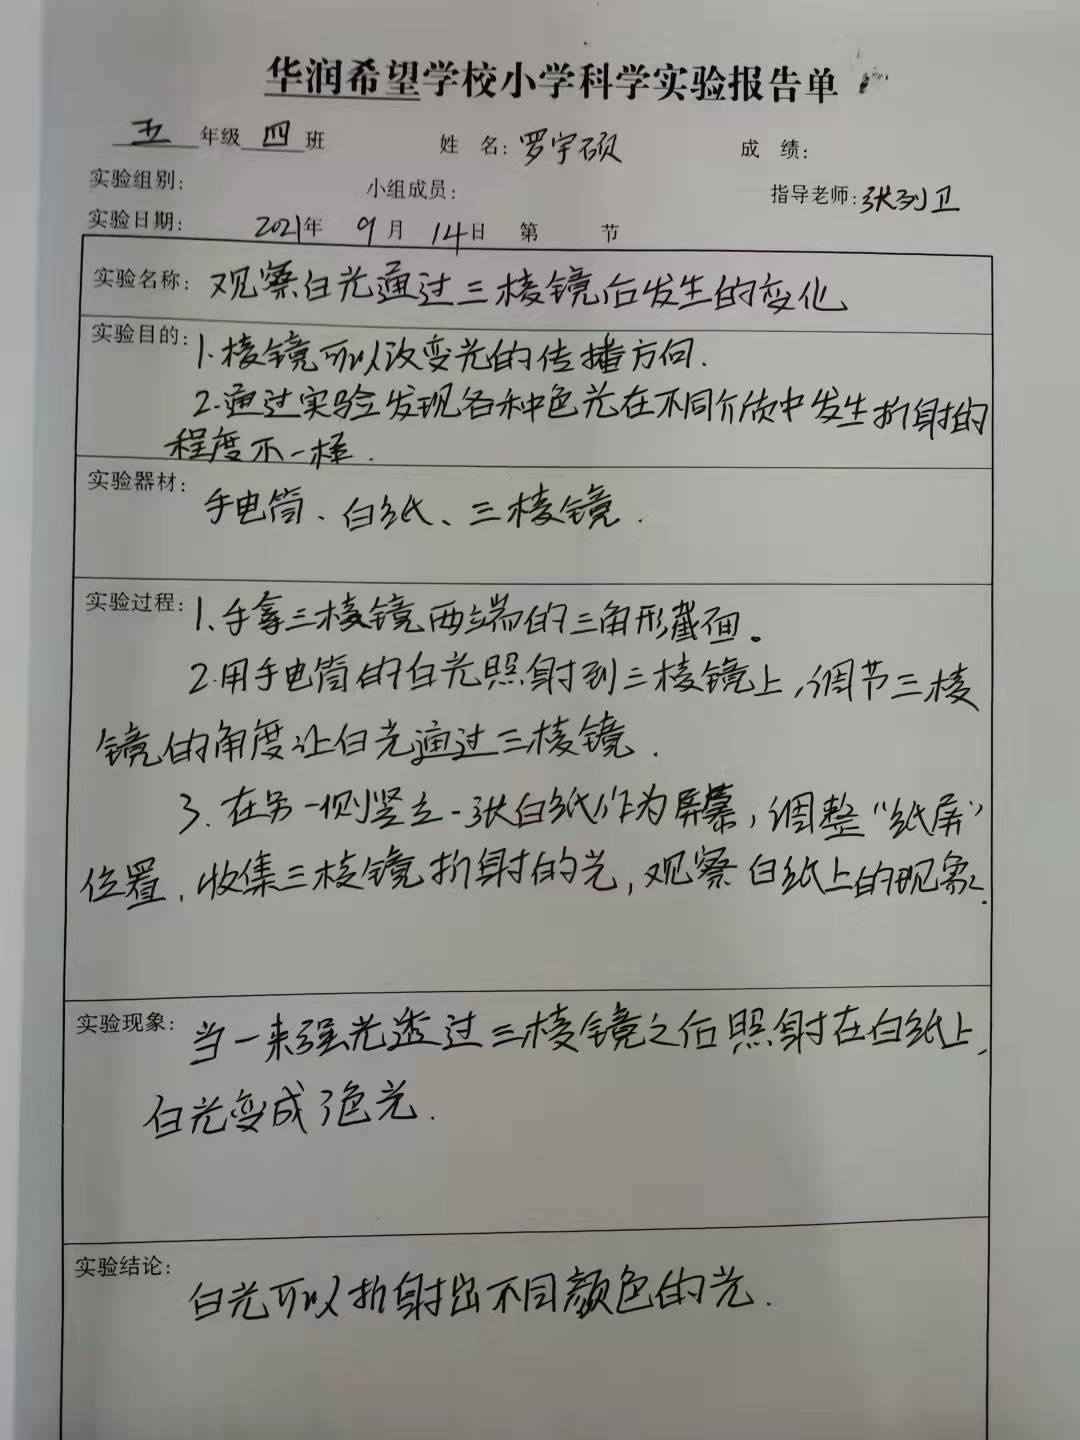 华润希望学校小学科学实验报告单
五年级四班 姓名：罗宇硕 成绩：
实验组别： 小组成员： 指导老师：张列卫
实验日期： 2021年 9月 14日 第 节
实验名称：观察白光通过三棱镜后发生的变化
实验目的：1.棱镜可以改变光的传播方向.
2.通过实验发现各种色光在不同介质中发生折射的
程度不一样.
实验器材：手电筒、白纸、三棱镜.
实验过程：1.手拿三棱镜两端的三角形截面。
2.用手电筒的白光照射到三棱镜上,调节三棱
镜的角度让白光通过三棱镜.
3.在另一侧竖立一张白纸作为屏幕,调整“纸屏”
位置,收集三棱镜折射的光,观察白纸上的现象.
实验现象：当一束强光透过三棱镜之后照射在白纸上,
白光变成了色光.
实验结论：白光可以折射出不同颜色的光.